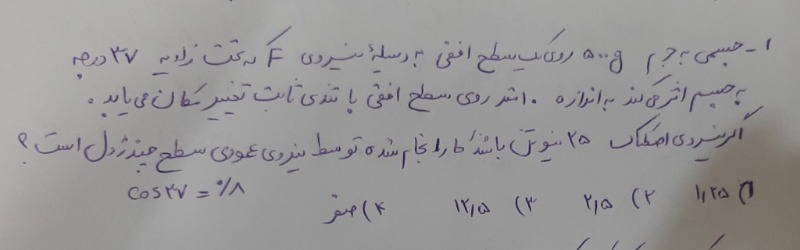 ۱- جسمی به جرم ۵۰۰g روی یک سطح افقی به وسیلهٔ نیروی F که تحت زاویه ۳۷ درجه
به جسم اثر می‌کند به اندازه ۱۰متر روی سطح افقی با تندی ثابت تغییر مکان می‌یابد.
اگر نیروی اصطکاک ۲۵ نیوتن باشد کار انجام شده توسط نیروی عمودی سطح چند ژول است؟
۱) ۱,۲۵ ۲) ۲,۵ ۳) ۱۲,۵ ۴) صفر cos۳۷=۰/۸